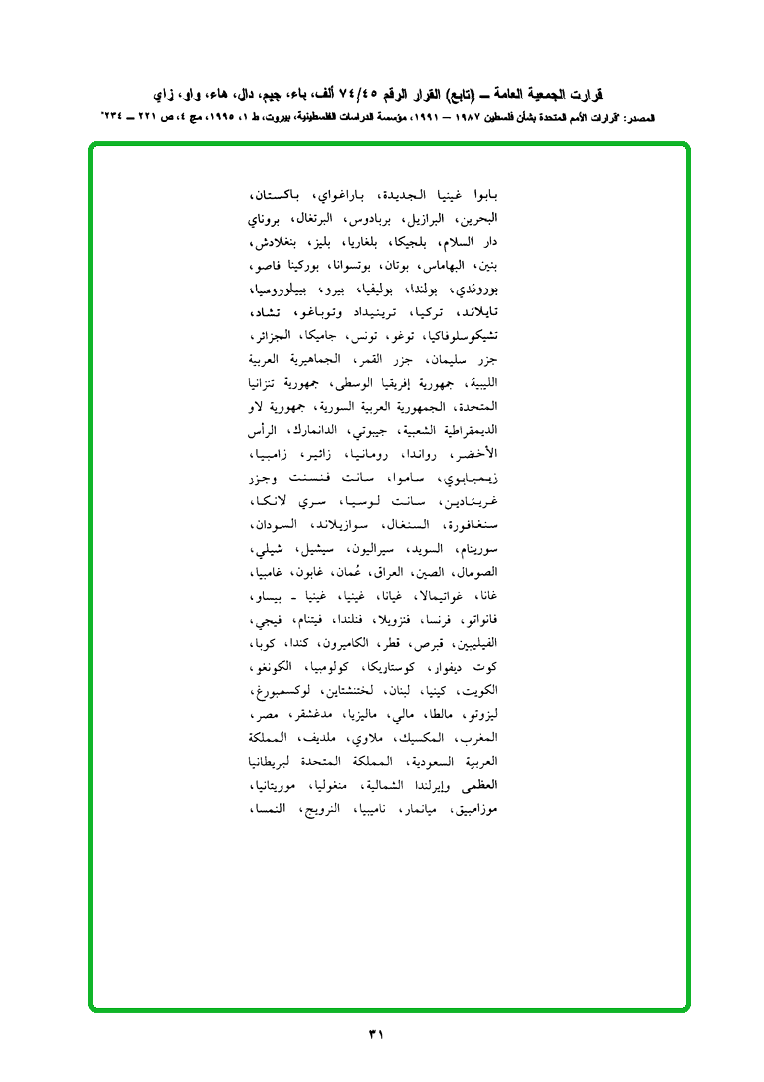 قرارت الجمعية العامة ــ (تابع) القرار الرقم ٧٤/٤٥ ألف، باء، جيم، دال، هاء، واو، زاي
المصدر: "قرارات الأمم المتحدة بشأن فلسطين ١٩٨٧ ــ ١٩٩١، مؤسسة الدراسات الفلسطينية، بيروت، ط ١، ١٩٩٥، مج ٤، ص ٢٢١ ــ ٢٣٤"
بابوا غينيا الجديدة، باراغواي، باكستان،
البحرين، البرازيل، بربادوس، البرتغال، بروناي
دار السلام، بلجيكا، بلغاريا، بليز، بنغلادش،
بنين، البهاماس، بوتان، بوتسوانا، بوركينا فاصو،
بوروندي، بولندا، بوليفيا، بيرو، بييلوروسيا،
تايلاند، تركيا، ترينيداد وتوباغو، تشاد،
تشيكوسلوفاكيا، توغو، تونس، جاميكا، الجزائر،
جزر سليمان، جزر القمر، الجماهيرية العربية
الليبية، جمهورية إفريقيا الوسطى، جمهورية تنزانيا
المتحدة، الجمهورية العربية السورية، جمهورية لاو
الديمقراطية الشعبية، جيبوتي، الدانمارك، الرأس
الأخضر، رواندا، رومانيا، زائير، زامبيا،
زيمبابوي، ساموا، سانت فنسنت وجزر
غرينادين، سانت لوسيا، سري لانكا،
سنغافورة، السنغال، سوازيلاند، السودان،
سورينام، السويد، سيراليون، سيشيل، شيلي،
الصومال، الصين، العراق، عُمان، غابون، غامبيا،
غانا، غواتيمالا، غيانا، غينيا، غينيا ـ بيساو،
فانواتو، فرنسا، فنزويلا، فنلندا، فيتنام، فيجي،
الفيليبين، قبرص، قطر، الكاميرون، كندا، كوبا،
كوت ديفوار، كوستاريكا، كولومبيا، الكونغو،
الكويت، كينيا، لبنان، لختنشتاين، لوكسمبورغ،
ليزوتو، مالطا، مالي، ماليزيا، مدغشقر، مصر،
المغرب، المكسيك، ملاوي، ملديف، المملكة
العربية السعودية، المملكة المتحدة لبريطانيا
العظمى وإيرلندا الشمالية، منغوليا، موريتانيا،
موزامبيق، ميانمار، ناميبيا، النرويج، النمسا،
٣١